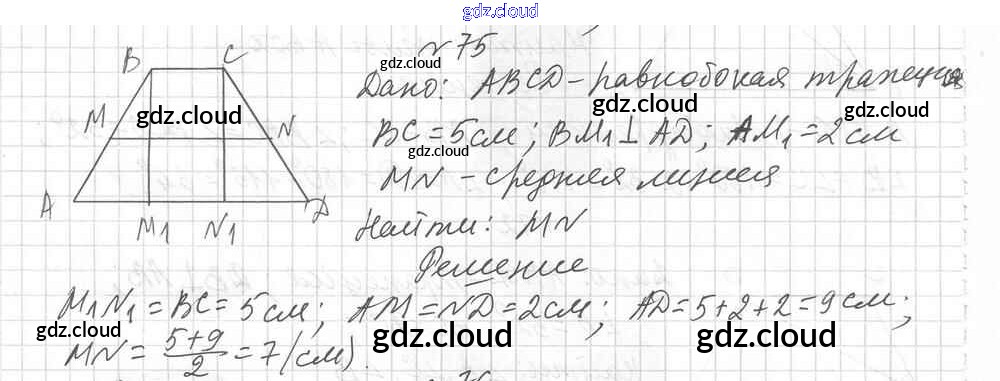 gdz.cloud
№75
Дано: ABCD - равнобокая трапеция
BC = 5 см; BM₁ ⊥ AD; AM₁ = 2 см
MN - средняя линия
Найти: MN
Решение
B C
M N
A M₁ N₁ D
M₁N₁ = BC = 5 см; AM = ND = 2 см; AD = 5+2+2 = 9 см;
MN = (5+9)/2 = 7 (см)
gdz.cloud
gdz.cloud
gdz.cloud
gdz.cloud
gdz.cloud
gdz.cloud
gdz.cloud
gdz.cloud
gdz.cloud